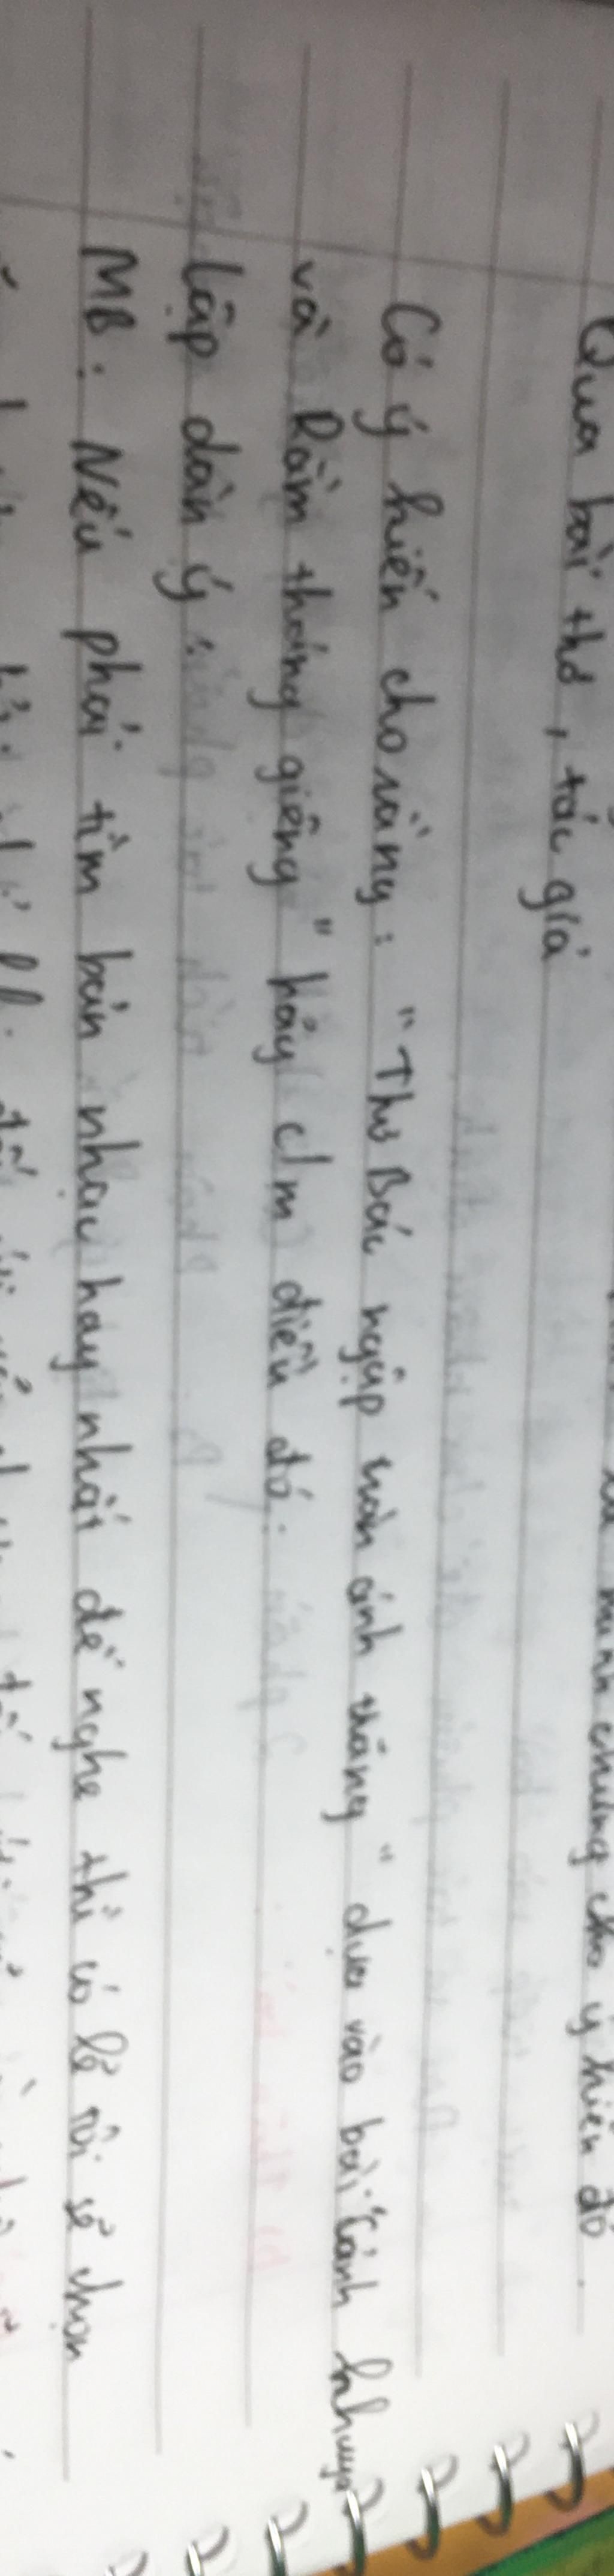 minh chứng cho ý kiến đó.
Qua bài thơ, tác giả
Có ý kiến cho rằng: "Thơ Bác ngập tràn ánh trăng" dựa vào bài "Cảnh khuya
và Rằm tháng giêng" hãy c/m điều đó.
Lập dàn ý:
MB: Nếu phải tìm bản nhạc hay nhất để nghe thì có lẽ tôi sẽ chọn